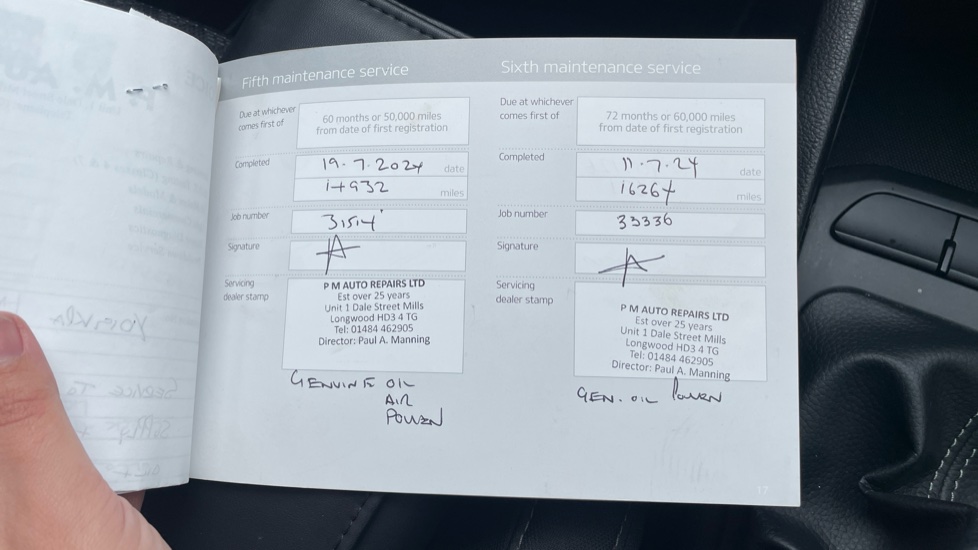 Fifth maintenance service
Due at whichever
comes first of
60 months or 50,000 miles
from date of first registration
Completed
19.7.2024 date
14932 miles
Job number
31514
Signature
Servicing
dealer stamp
P M AUTO REPAIRS LTD
Est over 25 years
Unit 1 Dale Street Mills
Longwood HD3 4 TG
Tel: 01484 462905
Director: Paul A. Manning
GENUINE OIL
AIR
POLLEN
Sixth maintenance service
Due at whichever
comes first of
72 months or 60,000 miles
from date of first registration
Completed
11.7.24 date
16264 miles
Job number
33336
Signature
Servicing
dealer stamp
P M AUTO REPAIRS LTD
Est over 25 years
Unit 1 Dale Street Mills
Longwood HD3 4 TG
Tel: 01484 462905
Director: Paul A. Manning
GEN. OIL POLLEN
17